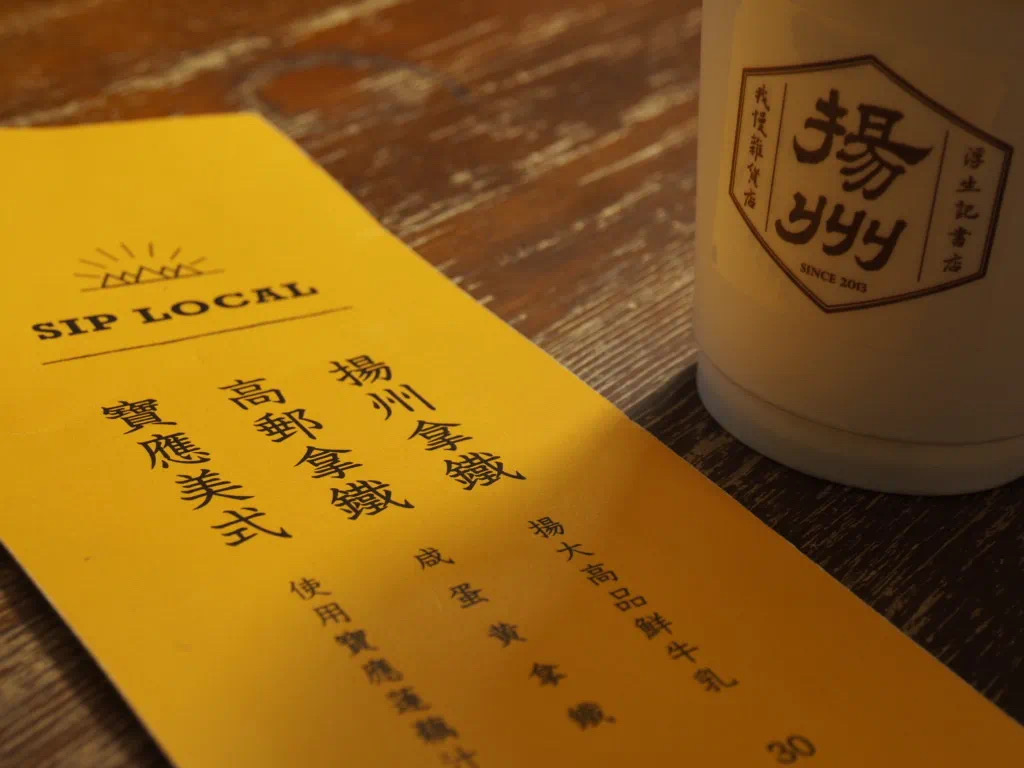 SIP LOCAL
揚州拿鐵
揚大高品鮮牛乳
30
高郵拿鐵
咸蛋黄拿鐵
寶應美式
使用寶應蓮藕汁
浮生記書店
揚州
SINCE 2013
我慢雜貨店